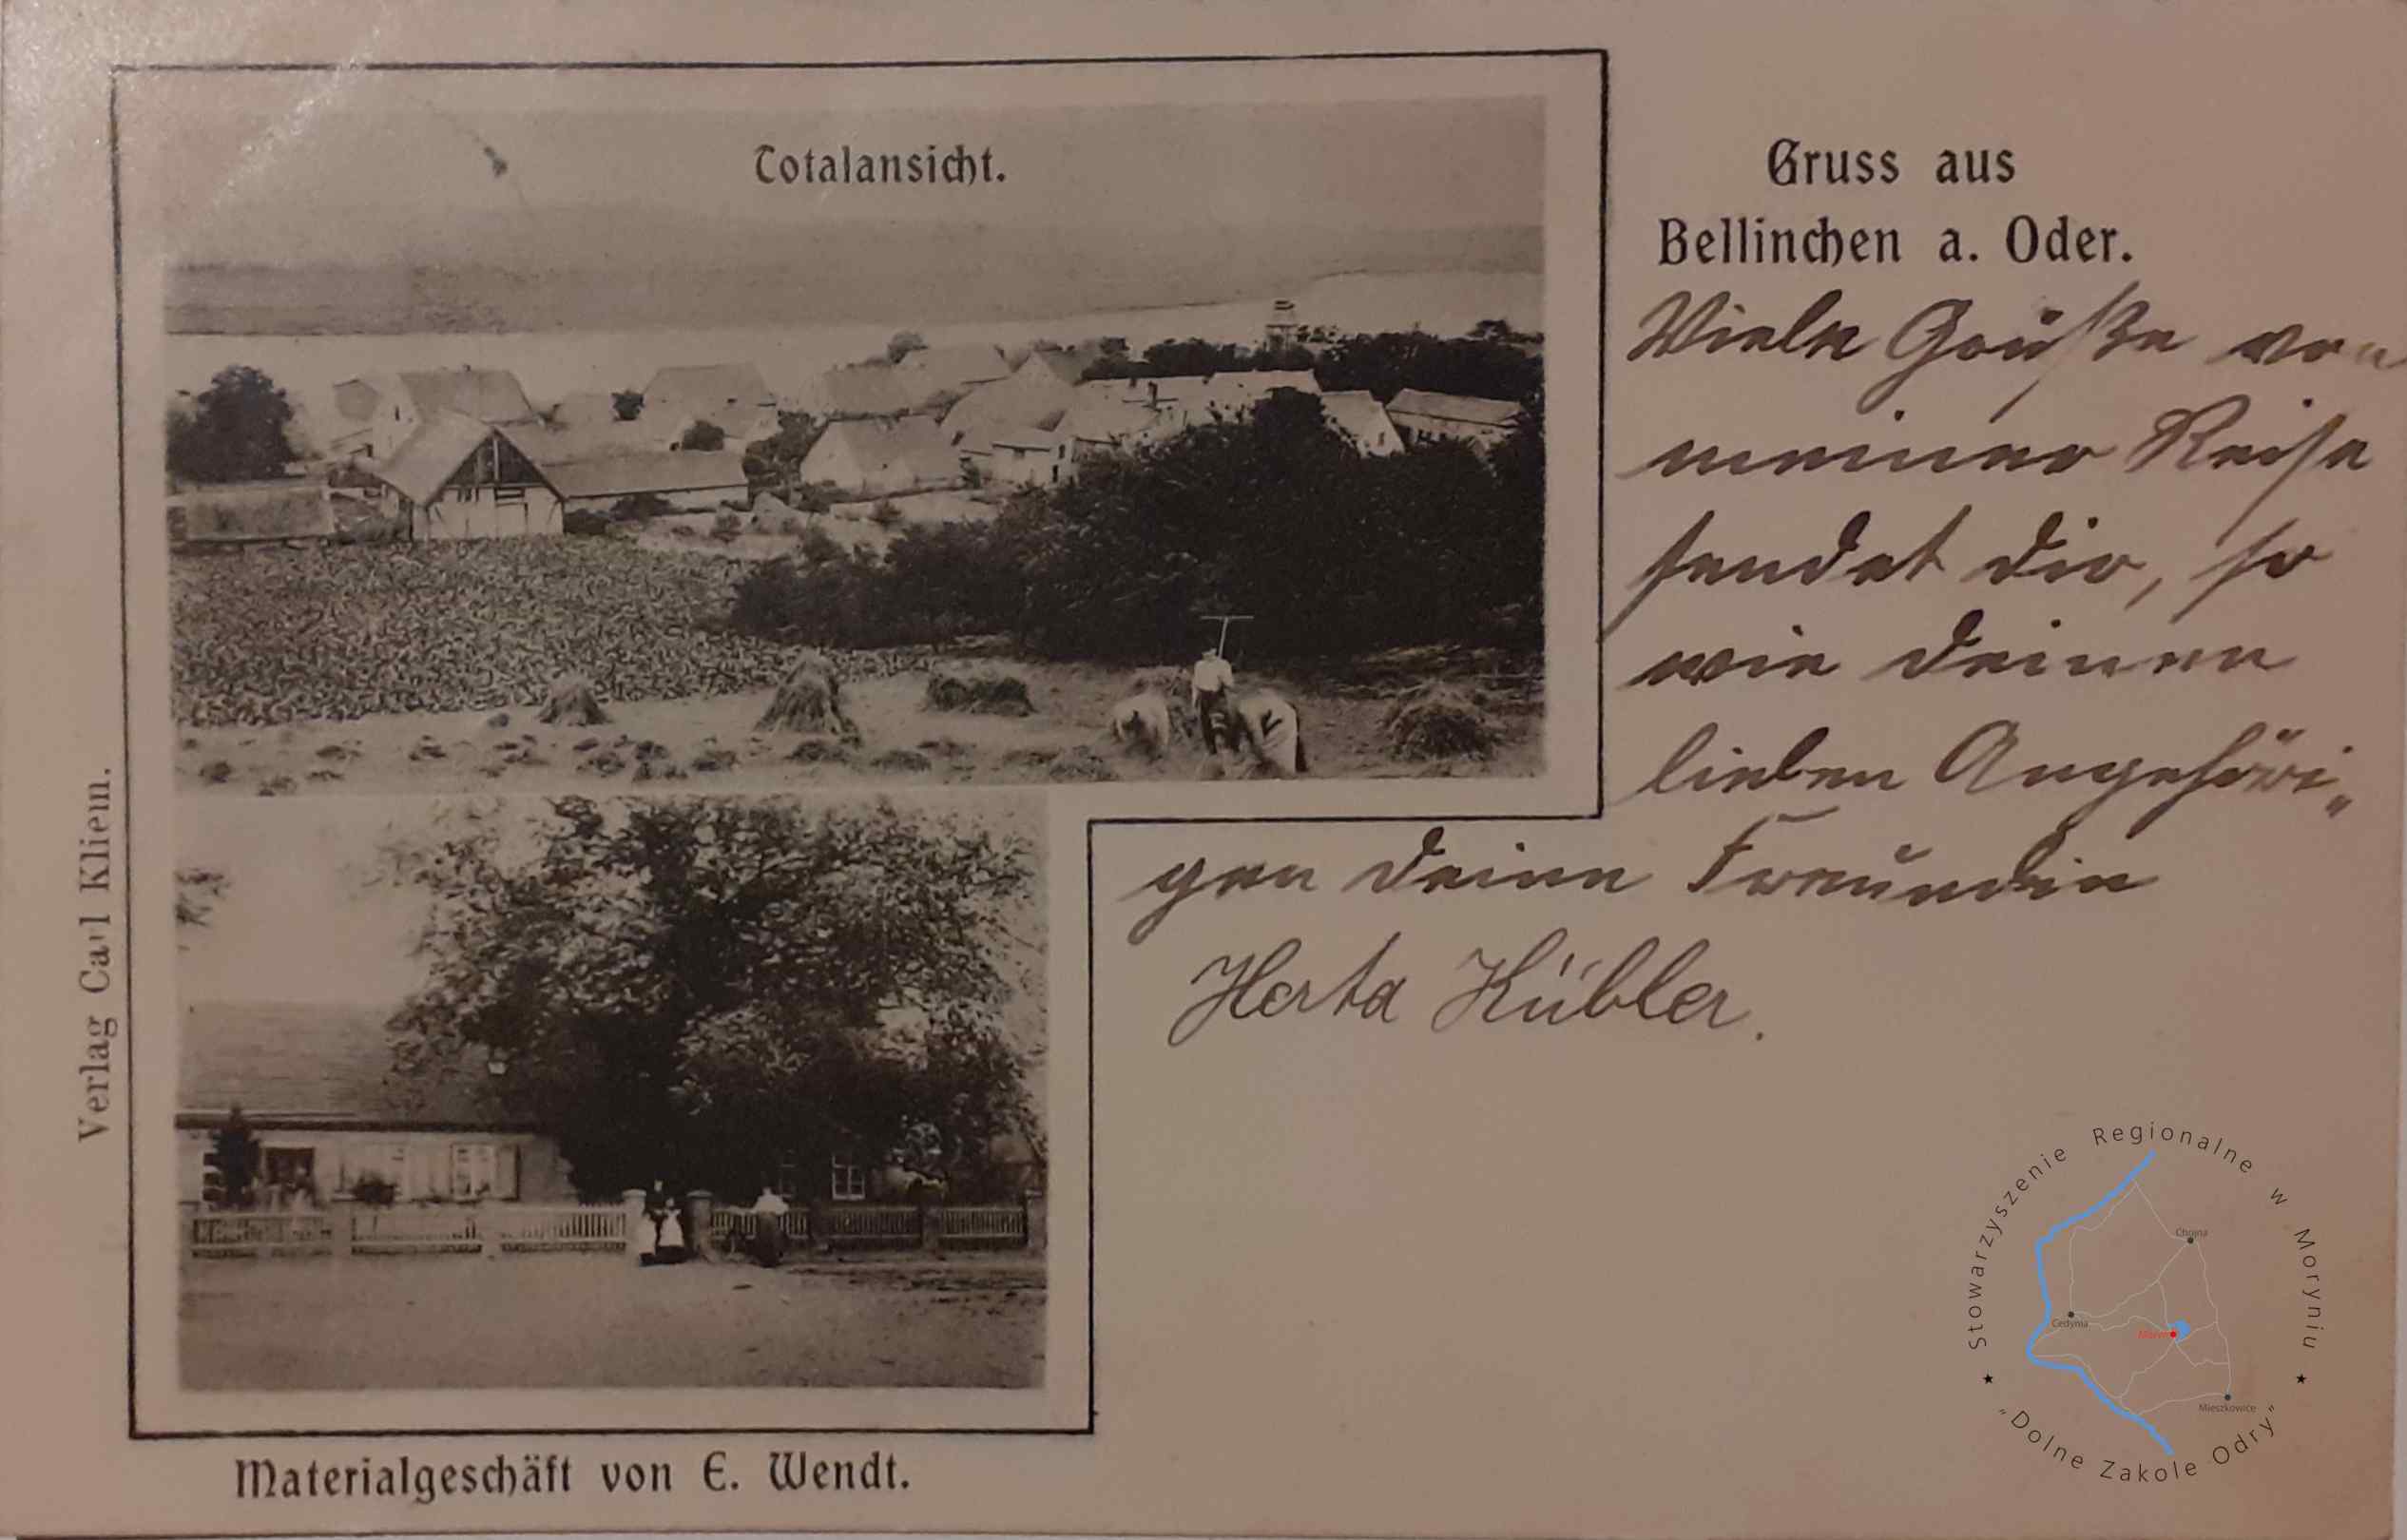 Totalansicht.
Gruss aus
Bellinchen a. Oder.
Viele Grüße von
meiner Reise
sendet dir, so
wie deinen
lieben Angehöri„
gen deine Freundin
Herta Kübler.
Verlag Carl Klien.
Materialgeschäft von E. Wendt.
Stowarzyszenie Regionalne w Moryniu
Chojna
Cedynia
Moryń
Mieszkowice
„Dolne Zakole Odry”